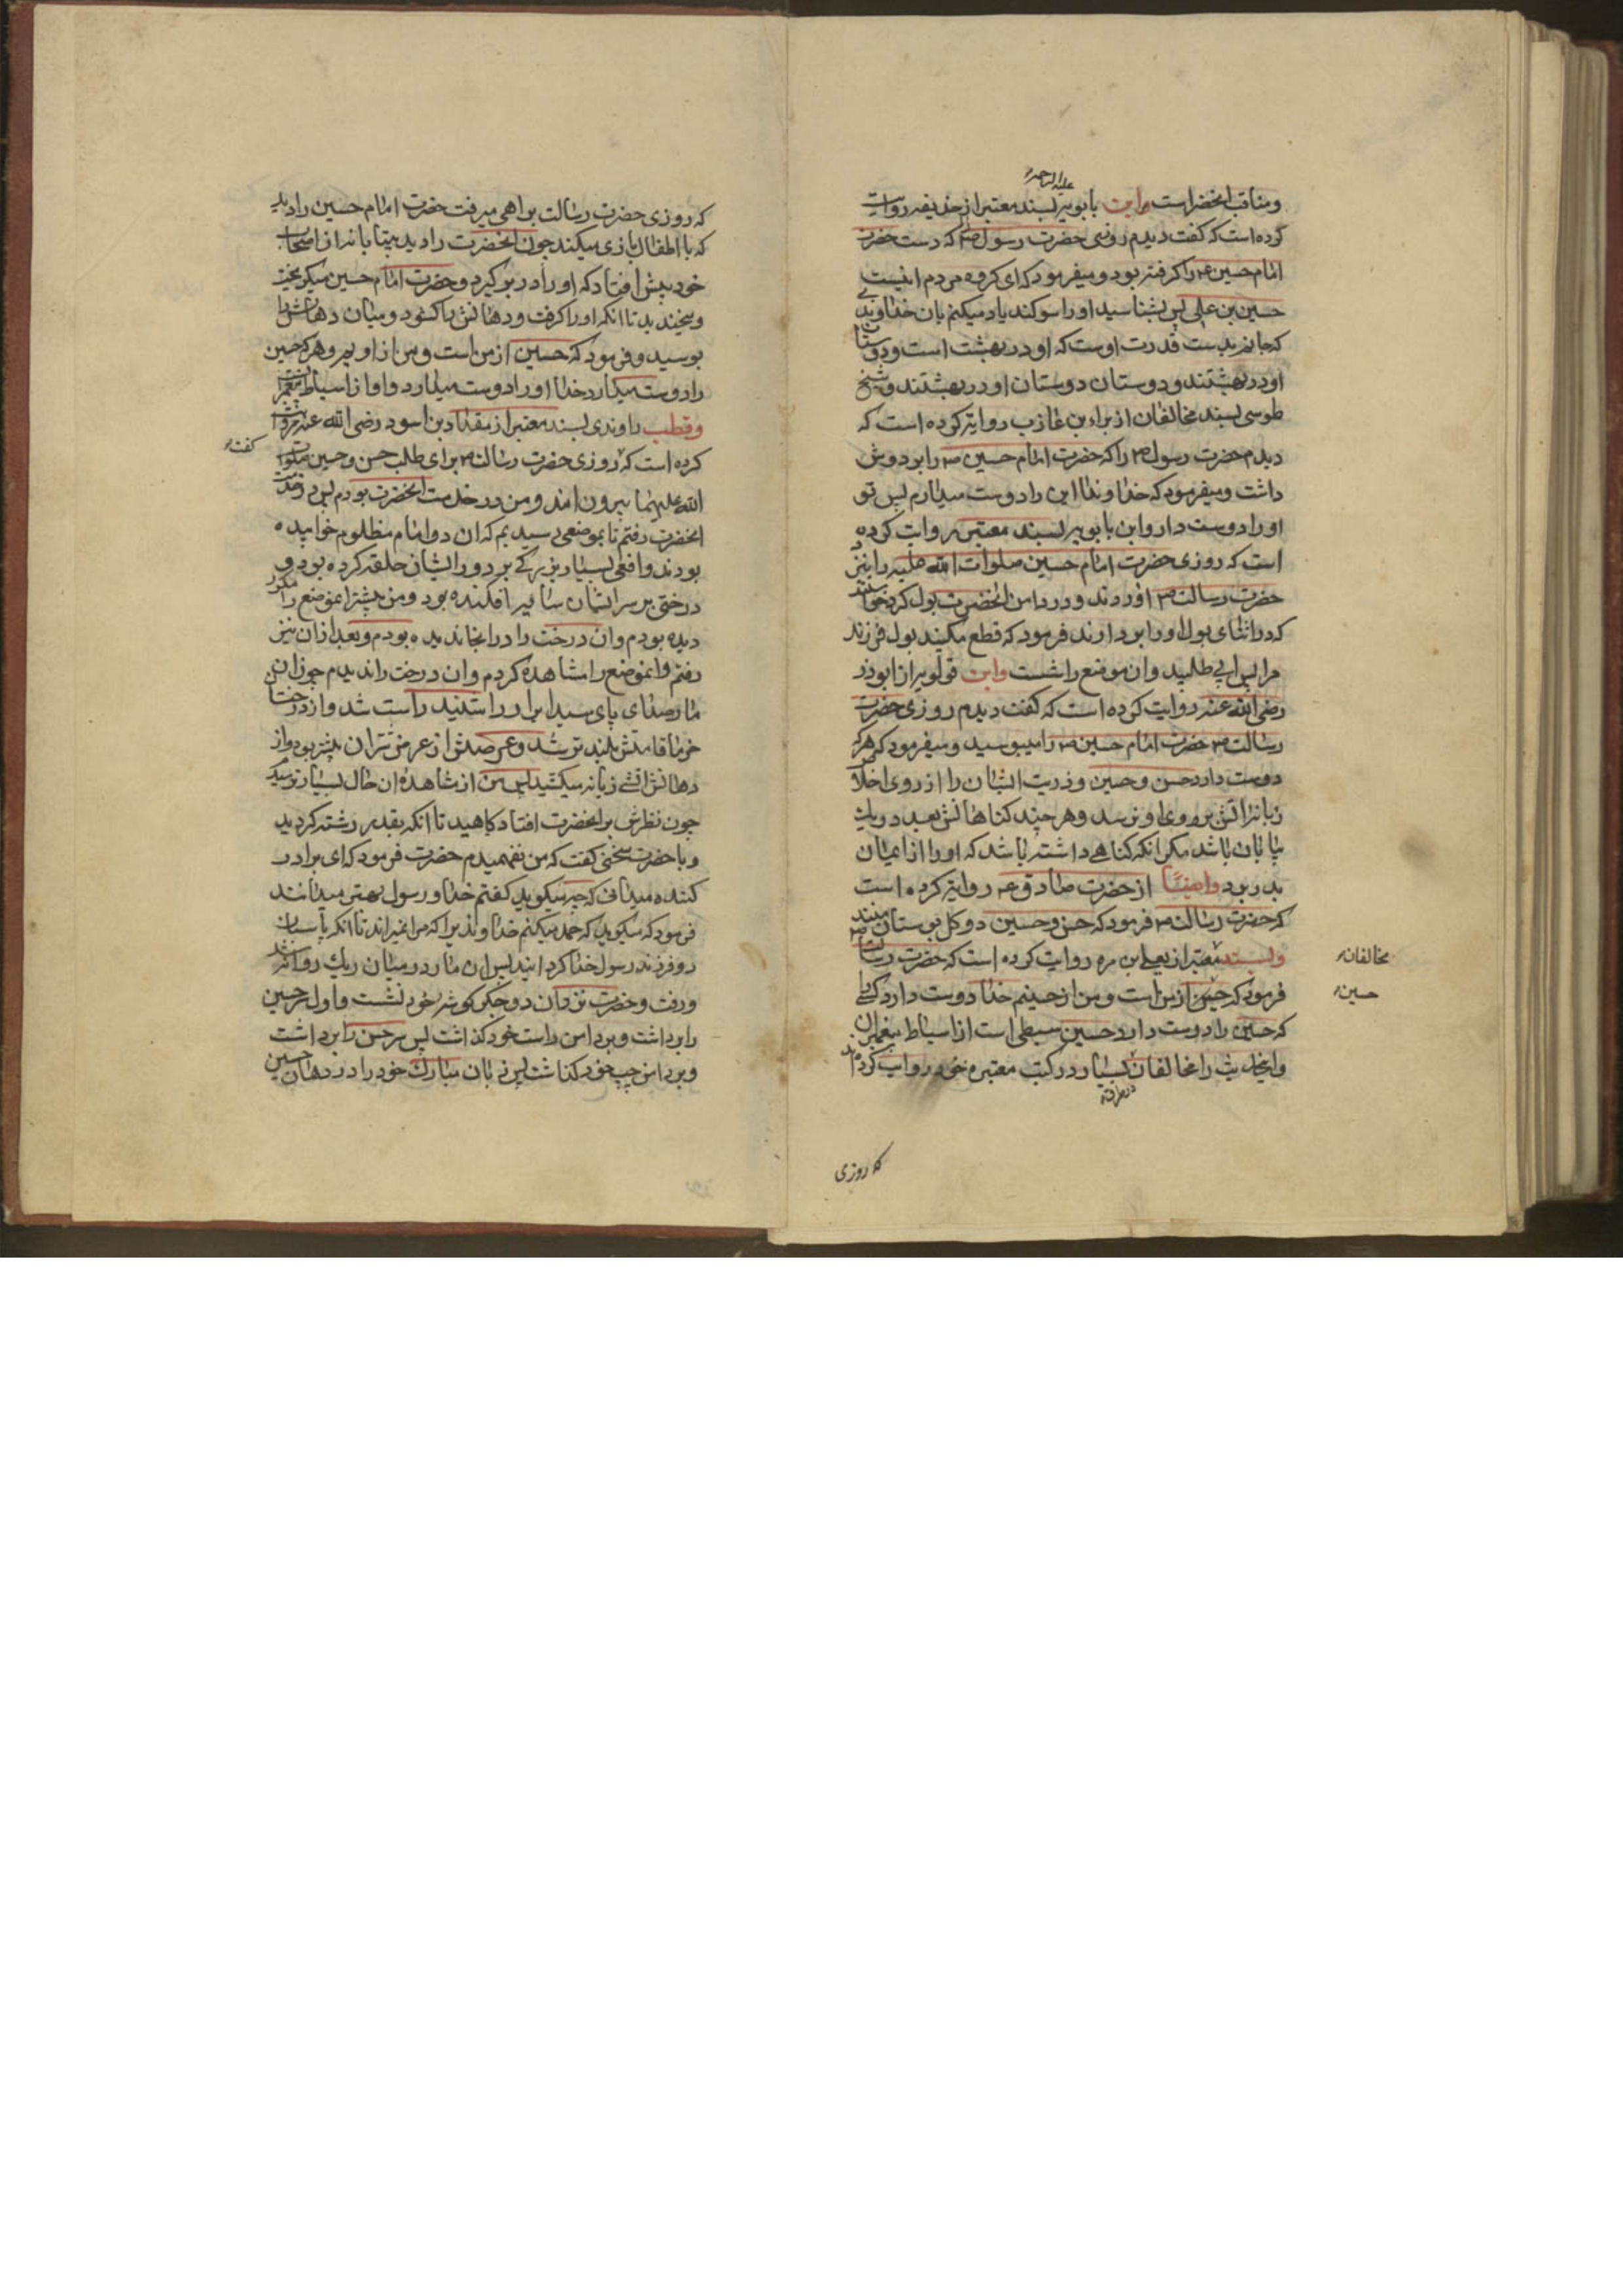 علیه الرحمه
و مناقب انحضراست و ابن بابویه بسند معتبر از حذیفه روایت
کرده است که گفت دیدم روزی حضرت رسول ص که دست حضرت
امام حسین ع را کرفته بود و میفرمود که ای کروه مردم اینست
حسین بن علی پس بشناسید او را سوکند یاد میکنم بان خداوندی
که جانم بدست قدرت اوست که او در بهشت است و دوستان
او در بهشتند و دوستان دوستان او در بهشتند و شیخ
طوسی بسند مخالفان از براء بن عازب روایت کرده است که
دیدم حضرت رسول ص را که حضرت امام حسین ع را بر دوش
داشت و میفرمود که خداوندا این را دوست میدارم پس تو
او را دوست دار و ابن بابویه بسند معتبر روایت کرده
است که روزی حضرت امام حسین صلوات الله علیه را بنزد
حضرت رسالت ص اوردند و در دامن انحضرت بول کرد خواستند
که در اثنای بول او را بردارند فرمود که قطع مکنید بول فرزند
مرا پس ابی طلبید و ان موضع را شست و ابن قولویه از ابوذر
رضی الله عنه روایت کرده است که گفت دیدم روزی حضرت
رسالت ص حضرت امام حسین ع را میبوسید و میفرمود که هر که
دوست دارد حسن و حسین و ذریت ایشان را از روی اخلاص
زبانه اتش بر روی او نرسد و هر چند کناهانش بعدد ریک
بیابان باشد مکر انکه کناهی داشته باشد که او را از ایمان
بدر برد و ایضا از حضرت صادق ع روایت کرده است
که حضرت رسالت ص فرمود که حسن و حسین دو کل بوستان منند
و بسند معتبر از یعلی ابن مره روایت کرده است که حضرت رسالت ص
مخالفان
فرمود که حسین از من است و من از حسینم خدا دوست دارد کسی را
حسین
که حسین را دوست دارد حسین سبطی است از اسباط پیغمبران
و این حدیث را مخالفان بسیار در کتب معتبره خود روایت کرده اند
که روزی
که روزی حضرت رسالت براهی میرفت حضرت امام حسین را دید
که با اطفال بازی میکند چون انحضرت را دید بیتابانه از اصحاب
خود پیش افتاد که او را در بر کیرد و حضرت امام حسین میکریخت
و میخندید تا انکه او را کرفت و دهانش را کشود و میان دهانش را
بوسید و فرمود که حسین از من است و من از اویم و هر که حسین
را دوست میدارد خدا او را دوست میدارد و او از اسباط پیغمبر
و قطب راوندی بسند معتبر از مقداد بن اسود رضی الله عنه روایت
کفت
کرده است که روزی حضرت رسالت ص برای طلب حسن و حسین صلوات
الله علیهما بیرون امد و من در خدمت انحضرت بودم پس در خدمت
انحضرت رفتم تا بموضعی رسیدیم که ان دو امام مظلوم خوابیده
بودند و افعی بسیار بزرکی بر دور ایشان حلقه کرده بود و
درختی بر سر ایشان سایه افکنده بود و من پیشتر انموضع را مکرر
دیده بودم و ان درخت را در انجا ندیده بودم و بعد از ان نیز
رفتم و انموضع را مشاهده کردم و ان درخت را ندیدم چون ان
مار صدای پای سید ابرار را شنید راست شد و از درخت
خرما قامتش بلندتر شد و عرضش از عرض شتران بیشتر بود و از
دهانش اتشی زبانه میکشید پس من از مشاهده ان حال بسیار ترسیدم
چون نظرش بر انحضرت افتاد کاهید تا انکه بقدر رشته کردید
و با حضرت سخنی کفت که من نفهمیدم حضرت فرمود که ای برادر
کنده میدانی که چه میکوید کفتم خدا و رسول بهتر میدانند
فرمود که میکوید که حمد میکنم خداوندیرا که مرا نمیراند تا انکه پاسبان
دو فرزند رسول خدا کردانید پس ان مار در میان ریک روانه شد
و رفت و حضرت نزد ان دو جکر کوشه خود نشست و اول سر حسین
را برداشت و بر دامن راست خود کذاشت پس سر حسن را برداشت
و بر دامن چپ خود کذاشت پس زبان مبارک خود را در دهان حسین